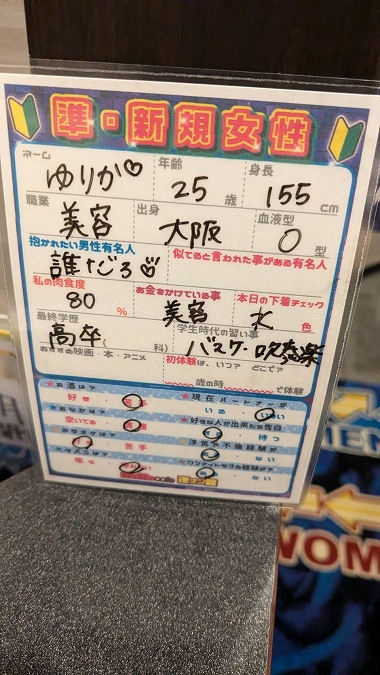 準・新規女性
ネーム 年齢 身長
ゆりか♡ 25歳 155cm
職業 出身 血液型
美容 大阪 O型
抱かれたい男性有名人 似てると言われた事がある有名人
誰だろ♡
私の肉食度 お金をかけている事 本日の下着チェック
80% 美容 水色
最終学歴 学生時代の習い事
高卒(科) バスケ・吹奏楽
おすすめ映画・本・アニメ 初体験は、いつ? どこで?
歳の時 で体験
お酒は? 現在パートナーが
好き・苦手 いる・いない
おなかは? 好きな人が出来たら告白
空いてる・ ・待つ
カラオケは? 浮気や不倫経験が
・苦手 ・ない
タバコは? ワンナイトラブの経験が?
吸う・ ・ない
MEN
WOM